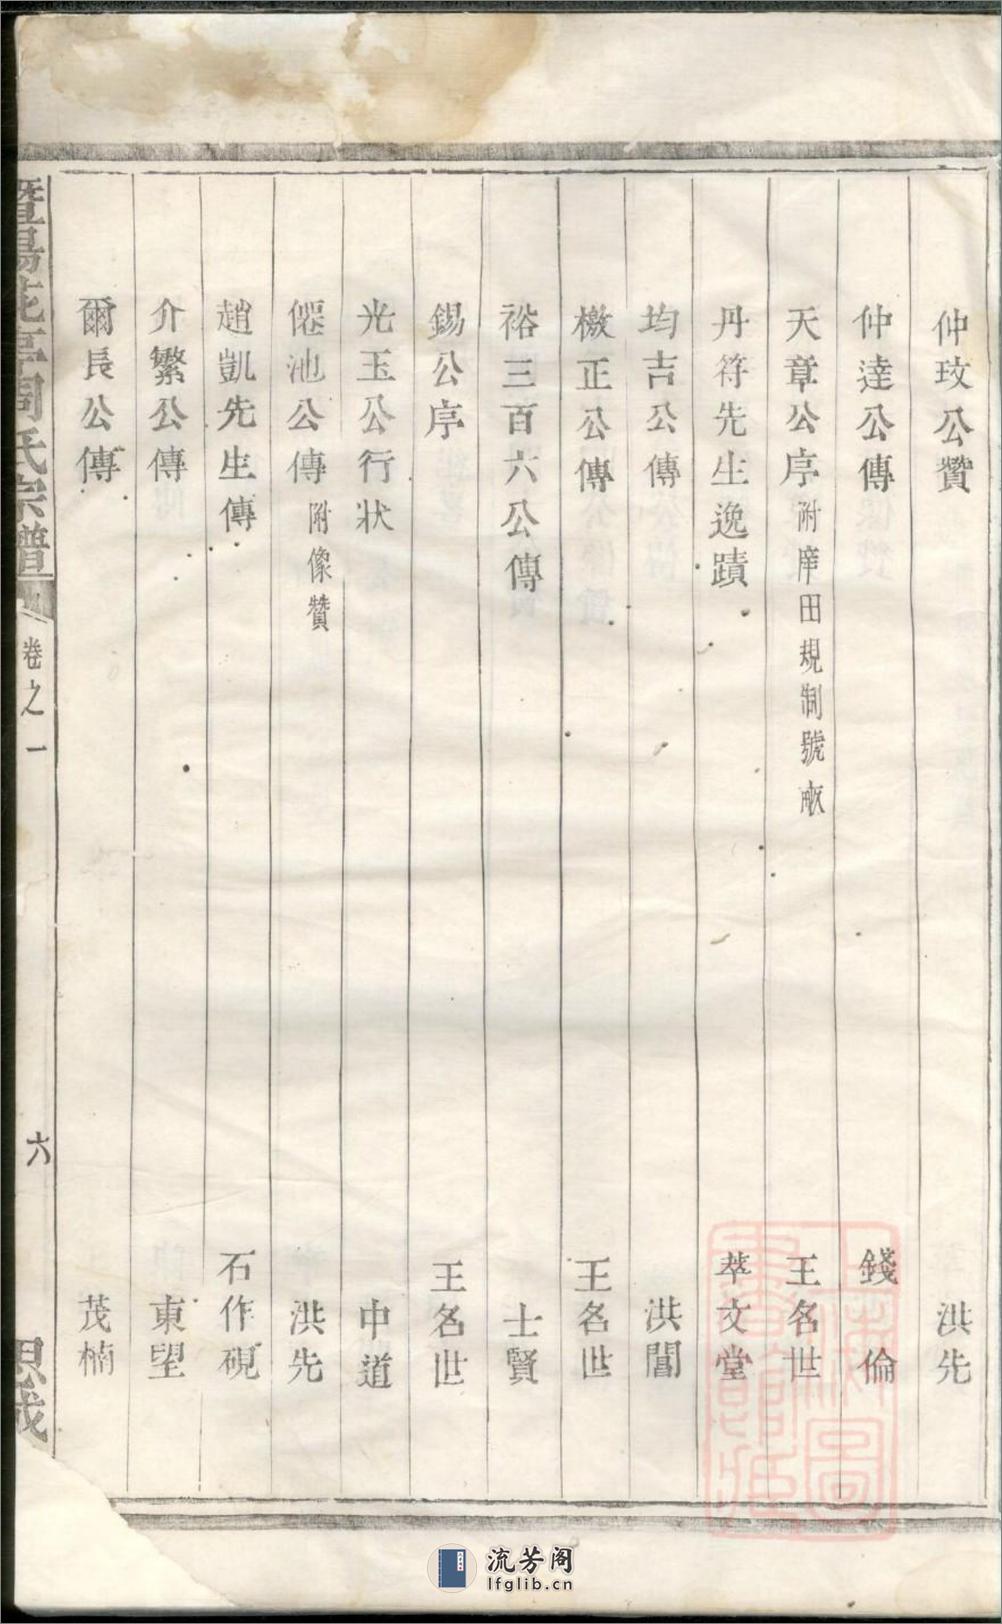 仲玟公贊 洪先
仲逹公傳 錢倫
天章公序 附庠田規制號畝 王名世
丹符先生逸蹟 萃文堂
均吉公傳 洪闇
檄正公傳 王名世
裕三百六公傳 士賢
錫公序 王名世
光玉公行狀 中道
僊池公傳 附像贊 洪先
趙凱先生傳 石作硯
介繁公傳 東望
爾長公傳 茂楠
暨陽花亭周氏宗譜 卷之一 六 思成
上海圖書館藏
流芳阁
lfglib.cn